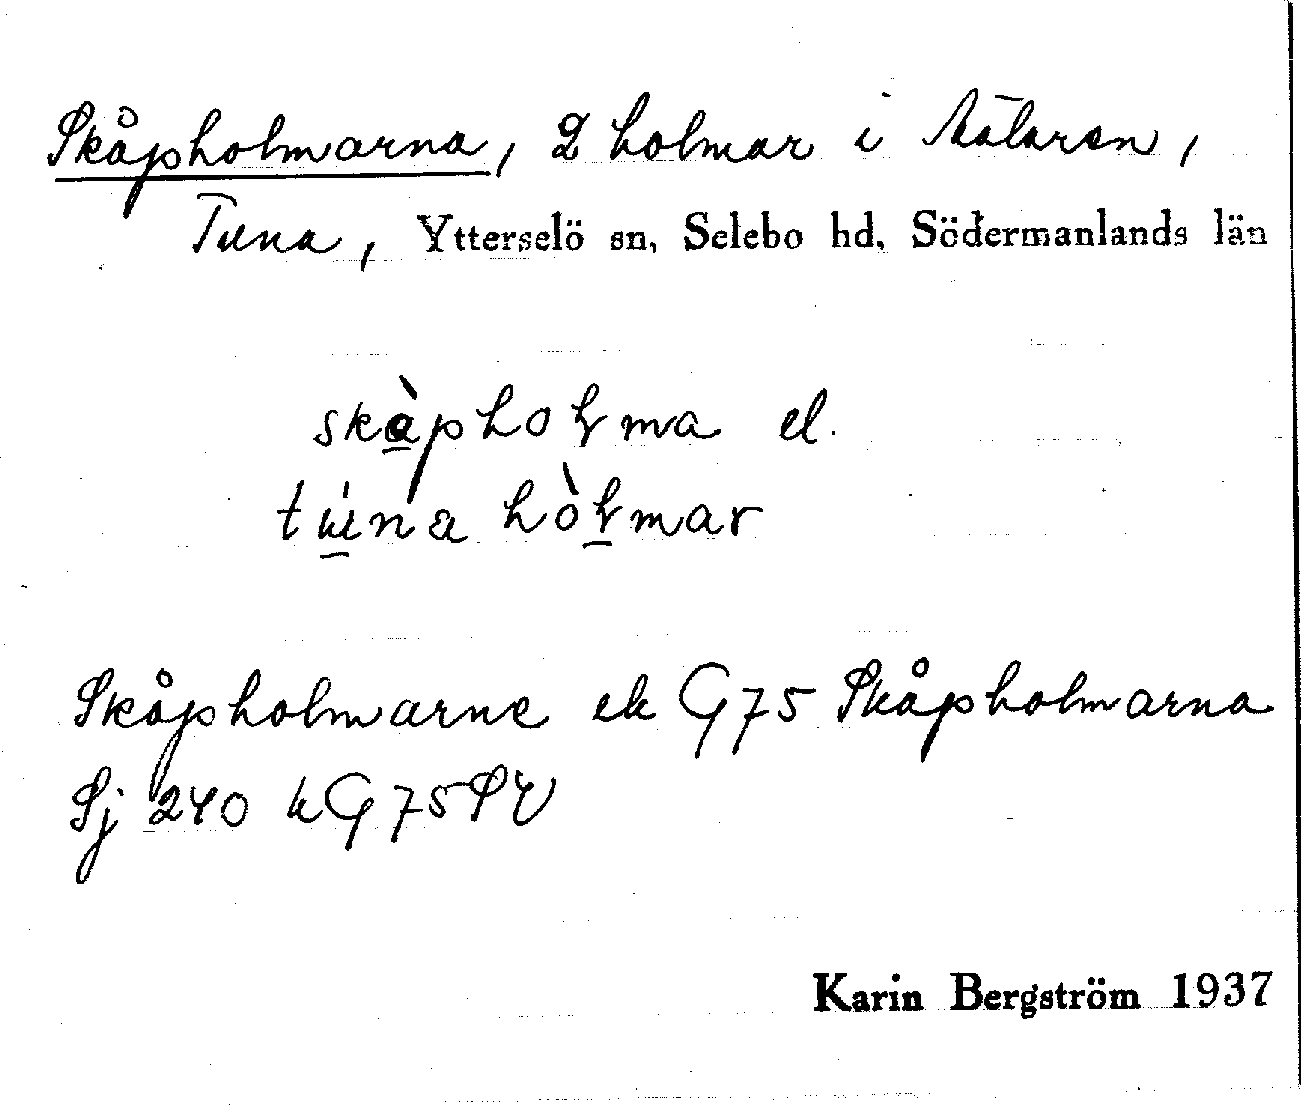 Skåpholmarna, 2 holmar i Mälaren,
Tuna, Ytterselö sn, Selebo hd, Södermanlands län
skàpholma el.
túna hòlmar
Skåpholmarne ek G75 Skåpholmarna
Sj 240 k G75 SV
Karin Bergström 1937